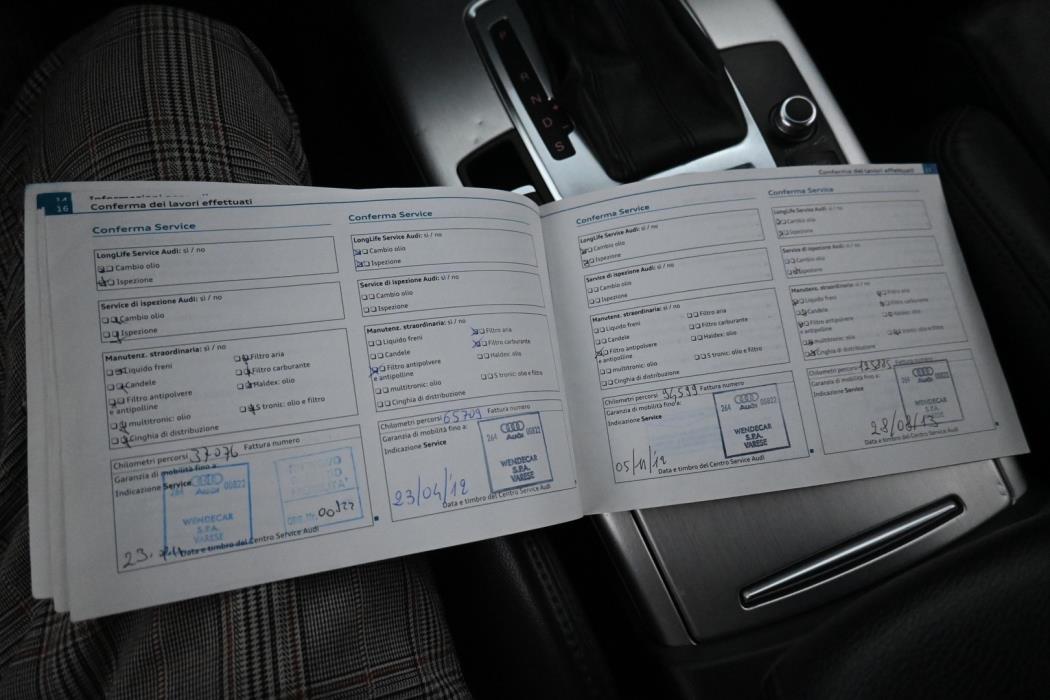 P
R
N
D
S
16
Conferma dei lavori effettuati
Conferma Service
LongLife Service Audi: sì / no
Cambio olio
Ispezione
Service di ispezione Audi: sì / no
Cambio olio
Ispezione
Manutenz. straordinaria: sì / no
Liquido freni
Filtro aria
Candele
Filtro carburante
Filtro antipolvere
e antipolline
Haldex: olio
multitronic: olio
S tronic: olio e filtro
Cinghia di distribuzione
Chilometri percorsi 37076 Fattura numero
Garanzia di mobilità fino a:
Indicazione Service
264 Audi 00822
WENDECAR
S.P.A.
VARESE
Data e timbro del Centro Service Audi
Conferma Service
LongLife Service Audi: sì / no
Cambio olio
Ispezione
Service di ispezione Audi: sì / no
Cambio olio
Ispezione
Manutenz. straordinaria: sì / no
Liquido freni
Filtro aria
Candele
Filtro carburante
Filtro antipolvere
e antipolline
Haldex: olio
multitronic: olio
S tronic: olio e filtro
Cinghia di distribuzione
Chilometri percorsi 65709 Fattura numero
Garanzia di mobilità fino a:
Indicazione Service
264 Audi 00822
WENDECAR
S.P.A.
VARESE
23/04/12
Data e timbro del Centro Service Audi
Conferma dei lavori effettuati
Conferma Service
LongLife Service Audi: sì / no
Cambio olio
Ispezione
Service di ispezione Audi: sì / no
Cambio olio
Ispezione
Manutenz. straordinaria: sì / no
Liquido freni
Filtro aria
Candele
Filtro carburante
Filtro antipolvere
e antipolline
Haldex: olio
multitronic: olio
S tronic: olio e filtro
Cinghia di distribuzione
Chilometri percorsi 94599 Fattura numero
Garanzia di mobilità fino a:
Indicazione Service
264 Audi 00822
WENDECAR
S.P.A.
VARESE
05/11/12
Data e timbro del Centro Service Audi
Conferma Service
LongLife Service Audi: sì / no
Cambio olio
Ispezione
Service di ispezione Audi: sì / no
Cambio olio
Ispezione
Manutenz. straordinaria: sì / no
Liquido freni
Filtro aria
Candele
Filtro carburante
Filtro antipolvere
e antipolline
Haldex: olio
multitronic: olio
S tronic: olio e filtro
Cinghia di distribuzione
Chilometri percorsi Fattura numero
Garanzia di mobilità fino a:
Indicazione Service
264 Audi 00822
WENDECAR
S.P.A.
VARESE
28/08/13
Data e timbro del Centro Service Audi